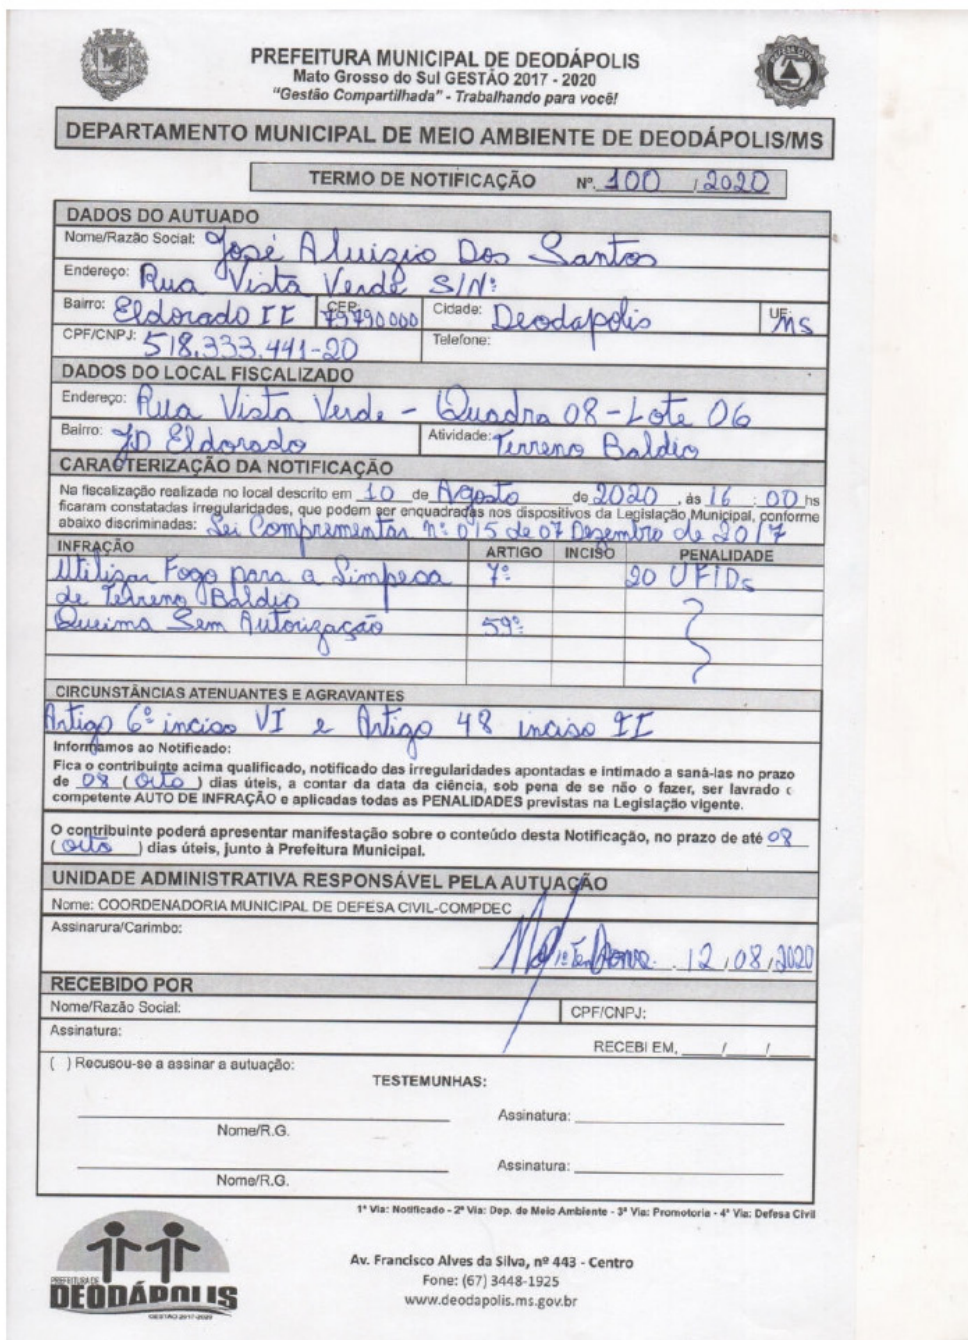 PREFEITURA MUNICIPAL DE DEODÁPOLIS
Mato Grosso do Sul GESTÃO 2017 - 2020
"Gestão Compartilhada" - Trabalhando para você!
DEFESA CIVIL
DEPARTAMENTO MUNICIPAL DE MEIO AMBIENTE DE DEODÁPOLIS/MS
TERMO DE NOTIFICAÇÃO Nº. 100 / 2020
DADOS DO AUTUADO
Nome/Razão Social: José Aluizio Dos Santos
Endereço: Rua Vista Verde S/Nº
Bairro: Eldorado II CEP: 79790000 Cidade: Deodapolis UF: MS
CPF/CNPJ: 518.333.441-20 Telefone:
DADOS DO LOCAL FISCALIZADO
Endereço: Rua Vista Verde - Quadra 08 - Lote 06
Bairro: JD Eldorado Atividade: Terreno Baldio
CARACTERIZAÇÃO DA NOTIFICAÇÃO
Na fiscalização realizada no local descrito em 10 de Agosto de 2020, ás 16:00 hs
ficaram constatadas irregularidades, que podem ser enquadradas nos dispositivos da Legislação Municipal, conforme
abaixo discriminadas: Lei Comprementar nº 015 de 07 Dezembro de 2017
INFRAÇÃO ARTIGO INCISO PENALIDADE
Utilizar Fogo para a Limpesa 7º 20 UFIDs
de Terreno Baldio
Queima Sem Autorização 59º
CIRCUNSTÂNCIAS ATENUANTES E AGRAVANTES
Artigo 6º inciso VI e Artigo 48 inciso II
Informamos ao Notificado:
Fica o contribuinte acima qualificado, notificado das irregularidades apontadas e intimado a saná-las no prazo
de 08 ( Oito ) dias úteis, a contar da data da ciência, sob pena de se não o fazer, ser lavrado o
competente AUTO DE INFRAÇÃO e aplicadas todas as PENALIDADES previstas na Legislação vigente.
O contribuinte poderá apresentar manifestação sobre o conteúdo desta Notificação, no prazo de até 08
( Oito ) dias úteis, junto à Prefeitura Municipal.
UNIDADE ADMINISTRATIVA RESPONSÁVEL PELA AUTUAÇÃO
Nome: COORDENADORIA MUNICIPAL DE DEFESA CIVIL-COMPDEC
Assinarura/Carimbo:
12 / 08 / 2020
RECEBIDO POR
Nome/Razão Social: CPF/CNPJ:
Assinatura:
RECEBI EM, ___/___/___
( ) Recusou-se a assinar a autuação:
TESTEMUNHAS:
Assinatura:
Nome/R.G.
Assinatura:
Nome/R.G.
1ª Via: Notificado - 2ª Via: Dep. de Meio Ambiente - 3ª Via: Promotoria - 4ª Via: Defesa Civil
Av. Francisco Alves da Silva, nº 443 - Centro
Fone: (67) 3448-1925
www.deodapolis.ms.gov.br
PREFEITURA DE
DEODÁPOLIS
GESTÃO 2017-2020